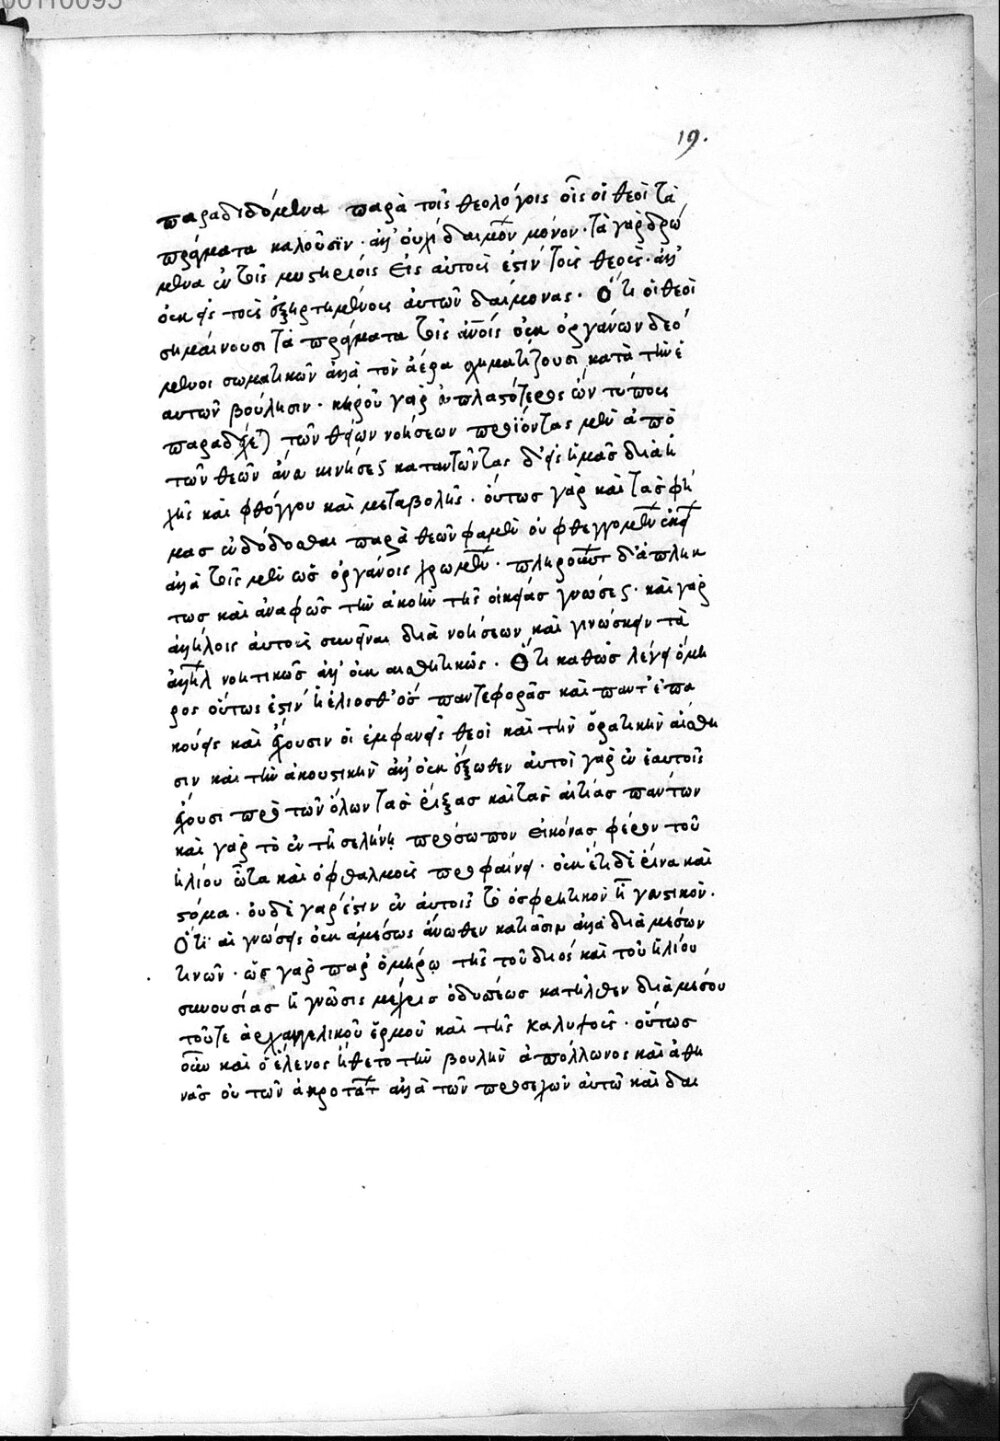 00110093
19.
παραδιδόμενα παρὰ τοῖς θεολόγοις οἷς οἱ θεοὶ τὰ
πράγματα καλοῦσιν· ἀλλ' οὐχὶ δαιμον μόνον· τὰ γὰρ δρώ
μενα ἐν τοῖς μυστηρίοις εἰς αὐτοὺς ἐστὶν τοὺς θεούς· ἀλλ'
οὐκ εἰς τοὺς ἐξηρτημένους αὐτῶν δαίμονας· Ὅτι οἱ θεοὶ
σημαίνουσι τὰ πράγματα τοῖς ἀνοις οὐκ ὀργάνων δεό
μενοι σωματικῶν ἀλλὰ τὸν ἀέρα σχηματίζουσι κατὰ τὴν ἑ
αυτῶν βούλησιν· κηροῦ γὰρ εὐπλαστότερος ὢν τύπους
παραδέχε τῶν θείων νοήσεων προϊόντας μὲν ἀπὸ
τῶν θεῶν ἄνευ κινήσεως καταντῶντας δ' εἰς ἡμᾶς διὰ ἠ
χῆς καὶ φθόγγου καὶ μεταβολῆς· οὕτως γὰρ καὶ τὰς φή
μας ἐνδίδοσθαι παρὰ θεῶν φαμὲν οὐ φθεγγομεν ἐκείν
ἀλλὰ τοῖς μὲν ὡς ὀργάνοις χρωμεν· πληρουντ δ' ἀπλη
τως καὶ ἀναφῶς τὴν ἀκοὴν τῆς οἰκείας γνώσεως· καὶ γὰρ
ἀλλήλοις αὐτοὺς συνεῖναι διὰ νοήσεων καὶ γινώσκειν τὰ
ἀλλήλ νοητικῶς ἀλλ' οὐκ αἰσθητικῶς· Ὅτι καθὼς λέγει ὅμη
ρος οὕτως ἐστὶν ἠέλιος θ' ὃς παντ' ἐφορᾶς καὶ παντ' ἐπα
κούεις καὶ ἔχουσιν οἱ ἐμφανεῖς θεοὶ καὶ τὴν ὁρατικὴν αἴσθη
σιν καὶ τὴν ἀκουστικὴν ἀλλ' οὐκ ἔξωθεν αὐτοὶ γὰρ ἐν ἑαυτοῖς
ἔχουσι πρὸ τῶν ὅλων τὰς ῥίζας καὶ τὰς αἰτίας πάντων
καὶ γὰρ τὸ ἐν τῆ σελήνη πρόσωπον εἰκόνας φέρον τοῦ
ἡλίου ὦτα καὶ ὀφθαλμοὺς προφαίνει· οὐκ ἔτι δὲ ῥίνα καὶ
στόμα· οὐδὲ γάρ ἐστιν ἐν αὐτοῖς τὸ ὀσφρητικὸν ἢ γευστικόν·
Ὅτι αἱ γνώσεις οὐκ ἀμέσως ἄνωθεν κατίασιν ἀλλὰ διὰ μέσων
τινῶν· ὡς γὰρ παρ' ὁμήρῳ τῆς τοῦ διὸς καὶ τοῦ ἡλίου
συνουσίας ἡ γνῶσις μέχρις ὀδυσσέως κατῆλθεν διὰ μέσου
τοῦτε ἀρχαγγελικοῦ ἑρμοῦ καὶ τῆς καλυψοῦς· οὕτως
οὖν καὶ ὁ ἕλενος ἤσθετο τὴν βουλὴν ἀπόλλωνος καὶ ἀθη
νᾶς οὐ τῶν ἀκροτάτ ἀλλὰ τῶν προσεχῶν αὐτῶ καὶ δαι